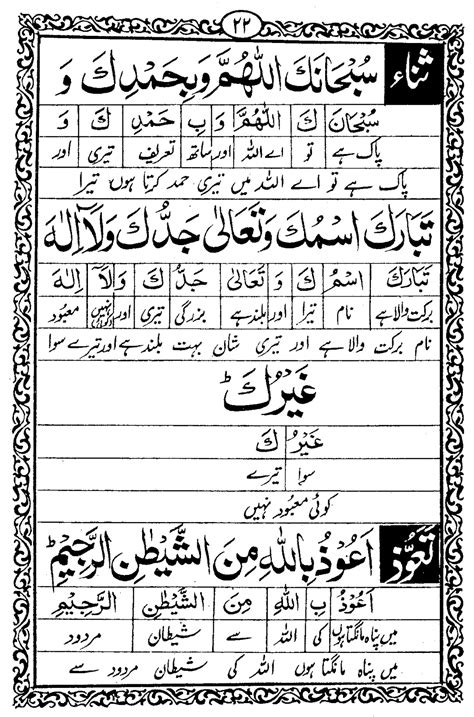 ۲۲
ثناء سُبْحَانَكَ اللّٰهُمَّ وَبِحَمْدِكَ وَ
سُبْحَانَ كَ اللّٰهُمَّ وَ بِ حَمْدِ كَ وَ
پاک ہے تو اے اللہ اور ساتھ تعریف تیری اور
پاک ہے تو اے اللہ میں تیری حمد کرتا ہوں تیرا
تَبَارَكَ اسْمُكَ وَتَعَالٰى جَدُّكَ وَلَآ اِلٰهَ
تَبَارَكَ اسْمُ كَ وَ تَعَالٰى جَدُّ كَ وَ لَآ اِلٰهَ
برکت والا ہے نام تیرا اور بلند ہے بزرگی تیری اور نہیں معبود
نام برکت والا ہے اور تیری شان بہت بلند ہے اور تیرے سوا
غَيْرُكَ ط
غَيْرُ كَ
سوا تیرے
کوئی معبود نہیں
تعوّذ اَعُوْذُ بِاللّٰهِ مِنَ الشَّيْطٰنِ الرَّجِيْمِ ط
اَعُوْذُ بِ اللّٰهِ مِنَ الشَّيْطٰنِ الرَّجِيْمِ
میں پناہ مانگتا ہوں کی اللہ سے شیطان مردود
میں پناہ مانگتا ہوں اللہ کی شیطان مردود سے